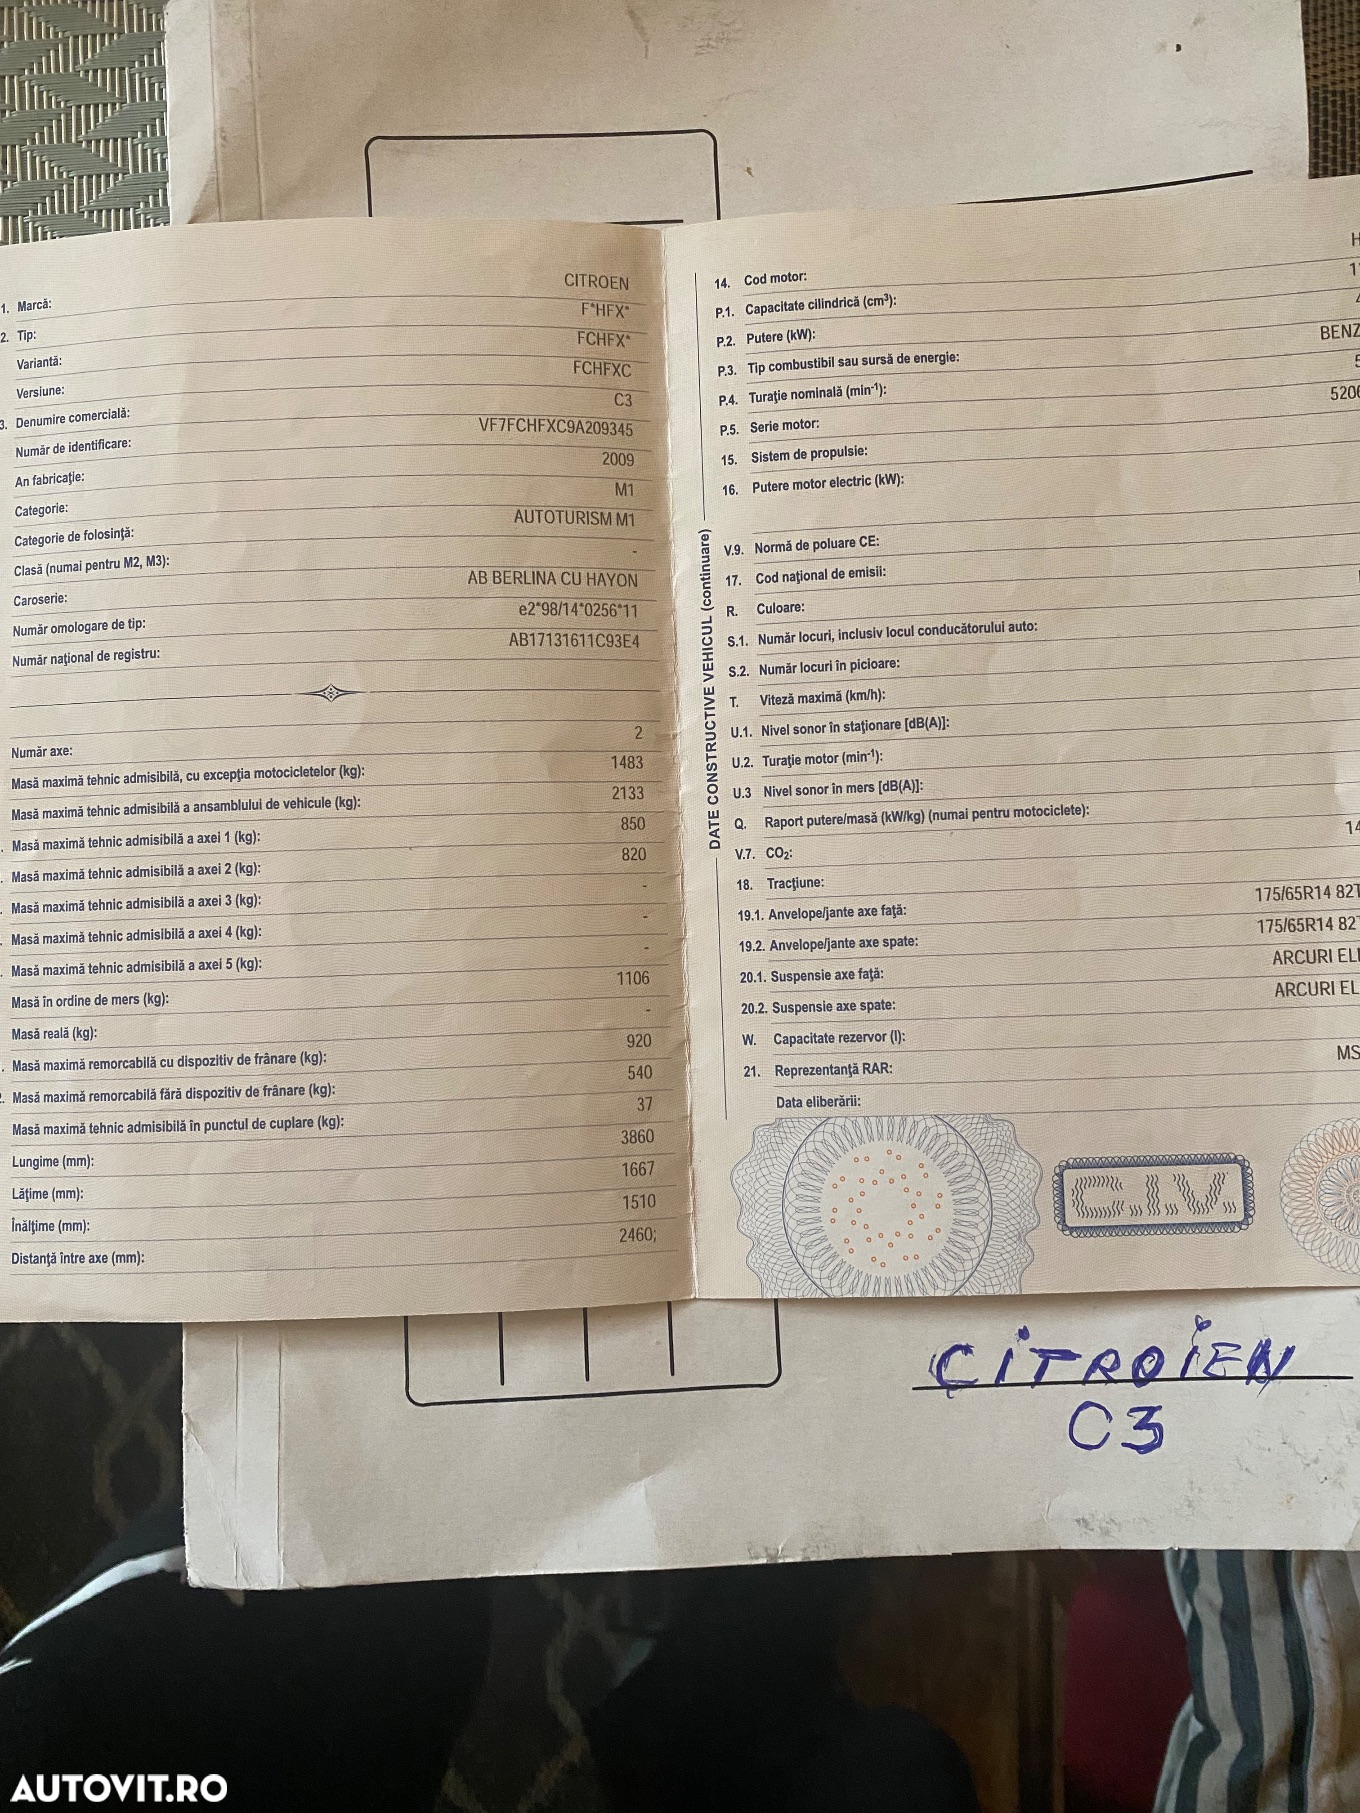 1. Marcă: CITROEN
2. Tip: F*HFX*
Variantă: FCHFX*
Versiune: FCHFXC
3. Denumire comercială: C3
Număr de identificare: VF7FCHFXC9A209345
An fabricaţie: 2009
Categorie: M1
Categorie de folosinţă: AUTOTURISM M1
Clasă (numai pentru M2, M3): -
Caroserie: AB BERLINA CU HAYON
Număr omologare de tip: e2*98/14*0256*11
Număr naţional de registru: AB17131611C93E4
Număr axe: 2
Masă maximă tehnic admisibilă, cu excepţia motocicletelor (kg): 1483
Masă maximă tehnic admisibilă a ansamblului de vehicule (kg): 2133
Masă maximă tehnic admisibilă a axei 1 (kg): 850
Masă maximă tehnic admisibilă a axei 2 (kg): 820
Masă maximă tehnic admisibilă a axei 3 (kg): -
Masă maximă tehnic admisibilă a axei 4 (kg): -
Masă maximă tehnic admisibilă a axei 5 (kg): -
Masă în ordine de mers (kg): 1106
Masă reală (kg): -
Masă maximă remorcabilă cu dispozitiv de frânare (kg): 920
Masă maximă remorcabilă fără dispozitiv de frânare (kg): 540
Masă maximă tehnic admisibilă în punctul de cuplare (kg): 37
Lungime (mm): 3860
Lăţime (mm): 1667
Înălţime (mm): 1510
Distanţă între axe (mm): 2460;
DATE CONSTRUCTIVE VEHICUL (continuare)
14. Cod motor: H
P.1. Capacitate cilindrică (cm³): 1
P.2. Putere (kW):
P.3. Tip combustibil sau sursă de energie: BENZ
P.4. Turaţie nominală (min-1): 5
P.5. Serie motor: 520
15. Sistem de propulsie:
16. Putere motor electric (kW):
V.9. Normă de poluare CE:
17. Cod naţional de emisii:
R. Culoare:
S.1. Număr locuri, inclusiv locul conducătorului auto:
S.2. Număr locuri în picioare:
T. Viteză maximă (km/h):
U.1. Nivel sonor în staţionare [dB(A)]:
U.2. Turaţie motor (min-1):
U.3 Nivel sonor în mers [dB(A)]:
Q. Raport putere/masă (kW/kg) (numai pentru motociclete):
V.7. CO2: 14
18. Tracţiune:
19.1. Anvelope/jante axe faţă: 175/65R14 82T
19.2. Anvelope/jante axe spate: 175/65R14 82
20.1. Suspensie axe faţă: ARCURI ELI
20.2. Suspensie axe spate: ARCURI EL
W. Capacitate rezervor (l):
21. Reprezentanţă RAR: MS
Data eliberării:
C.I.V.
CITROIEN
C3
AUTOVIT.RO